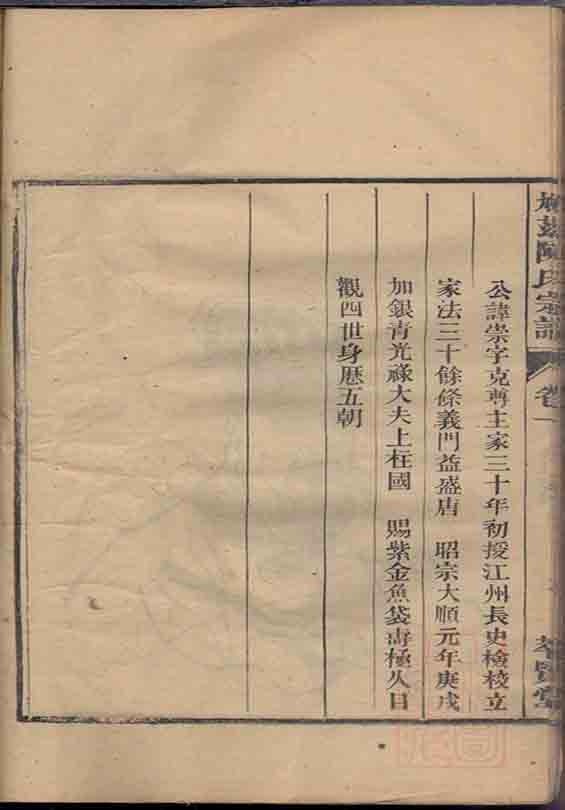 陳氏宗譜
卷一
公諱崇字克尊主家三十年初授江州長史檢校立
家法三十餘條義門益盛唐 昭宗大順元年庚戌
加銀青光祿大夫上柱國 賜紫金魚袋壽極人目
觀四世身歷五朝